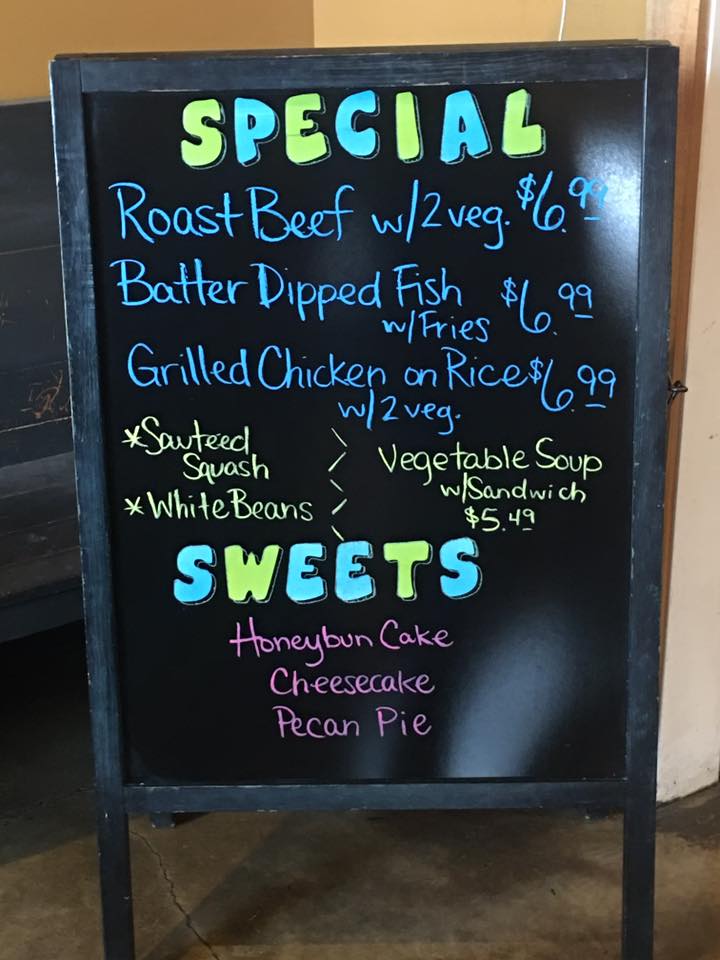 SPECIAL
Roast Beef w/2 veg. $6.99
Batter Dipped Fish $6.99
w/Fries
Grilled Chicken on Rice $6.99
w/2 veg.
*Sauteed
Squash
*White Beans
Vegetable Soup
w/Sandwich
$5.49
SWEETS
Honeybun Cake
Cheesecake
Pecan Pie